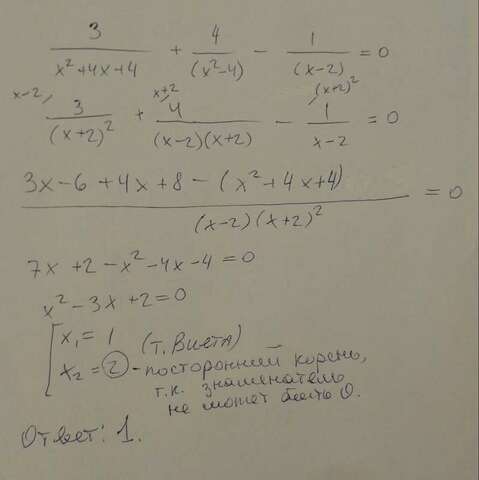 3/(x²+4x+4) + 4/(x²-4) - 1/(x-2) = 0
x-2/ 3/(x+2)² + x+2/ 4/((x-2)(x+2)) - (x+2)²/ 1/(x-2) = 0
(3x-6+4x+8-(x²+4x+4))/((x-2)(x+2)²) = 0
7x+2-x²-4x-4=0
x²-3x+2=0
[x₁=1 (т. Виета)
x₂=2 - посторонний корень,
т.к. знаменатель
не может быть 0.
Ответ: 1.